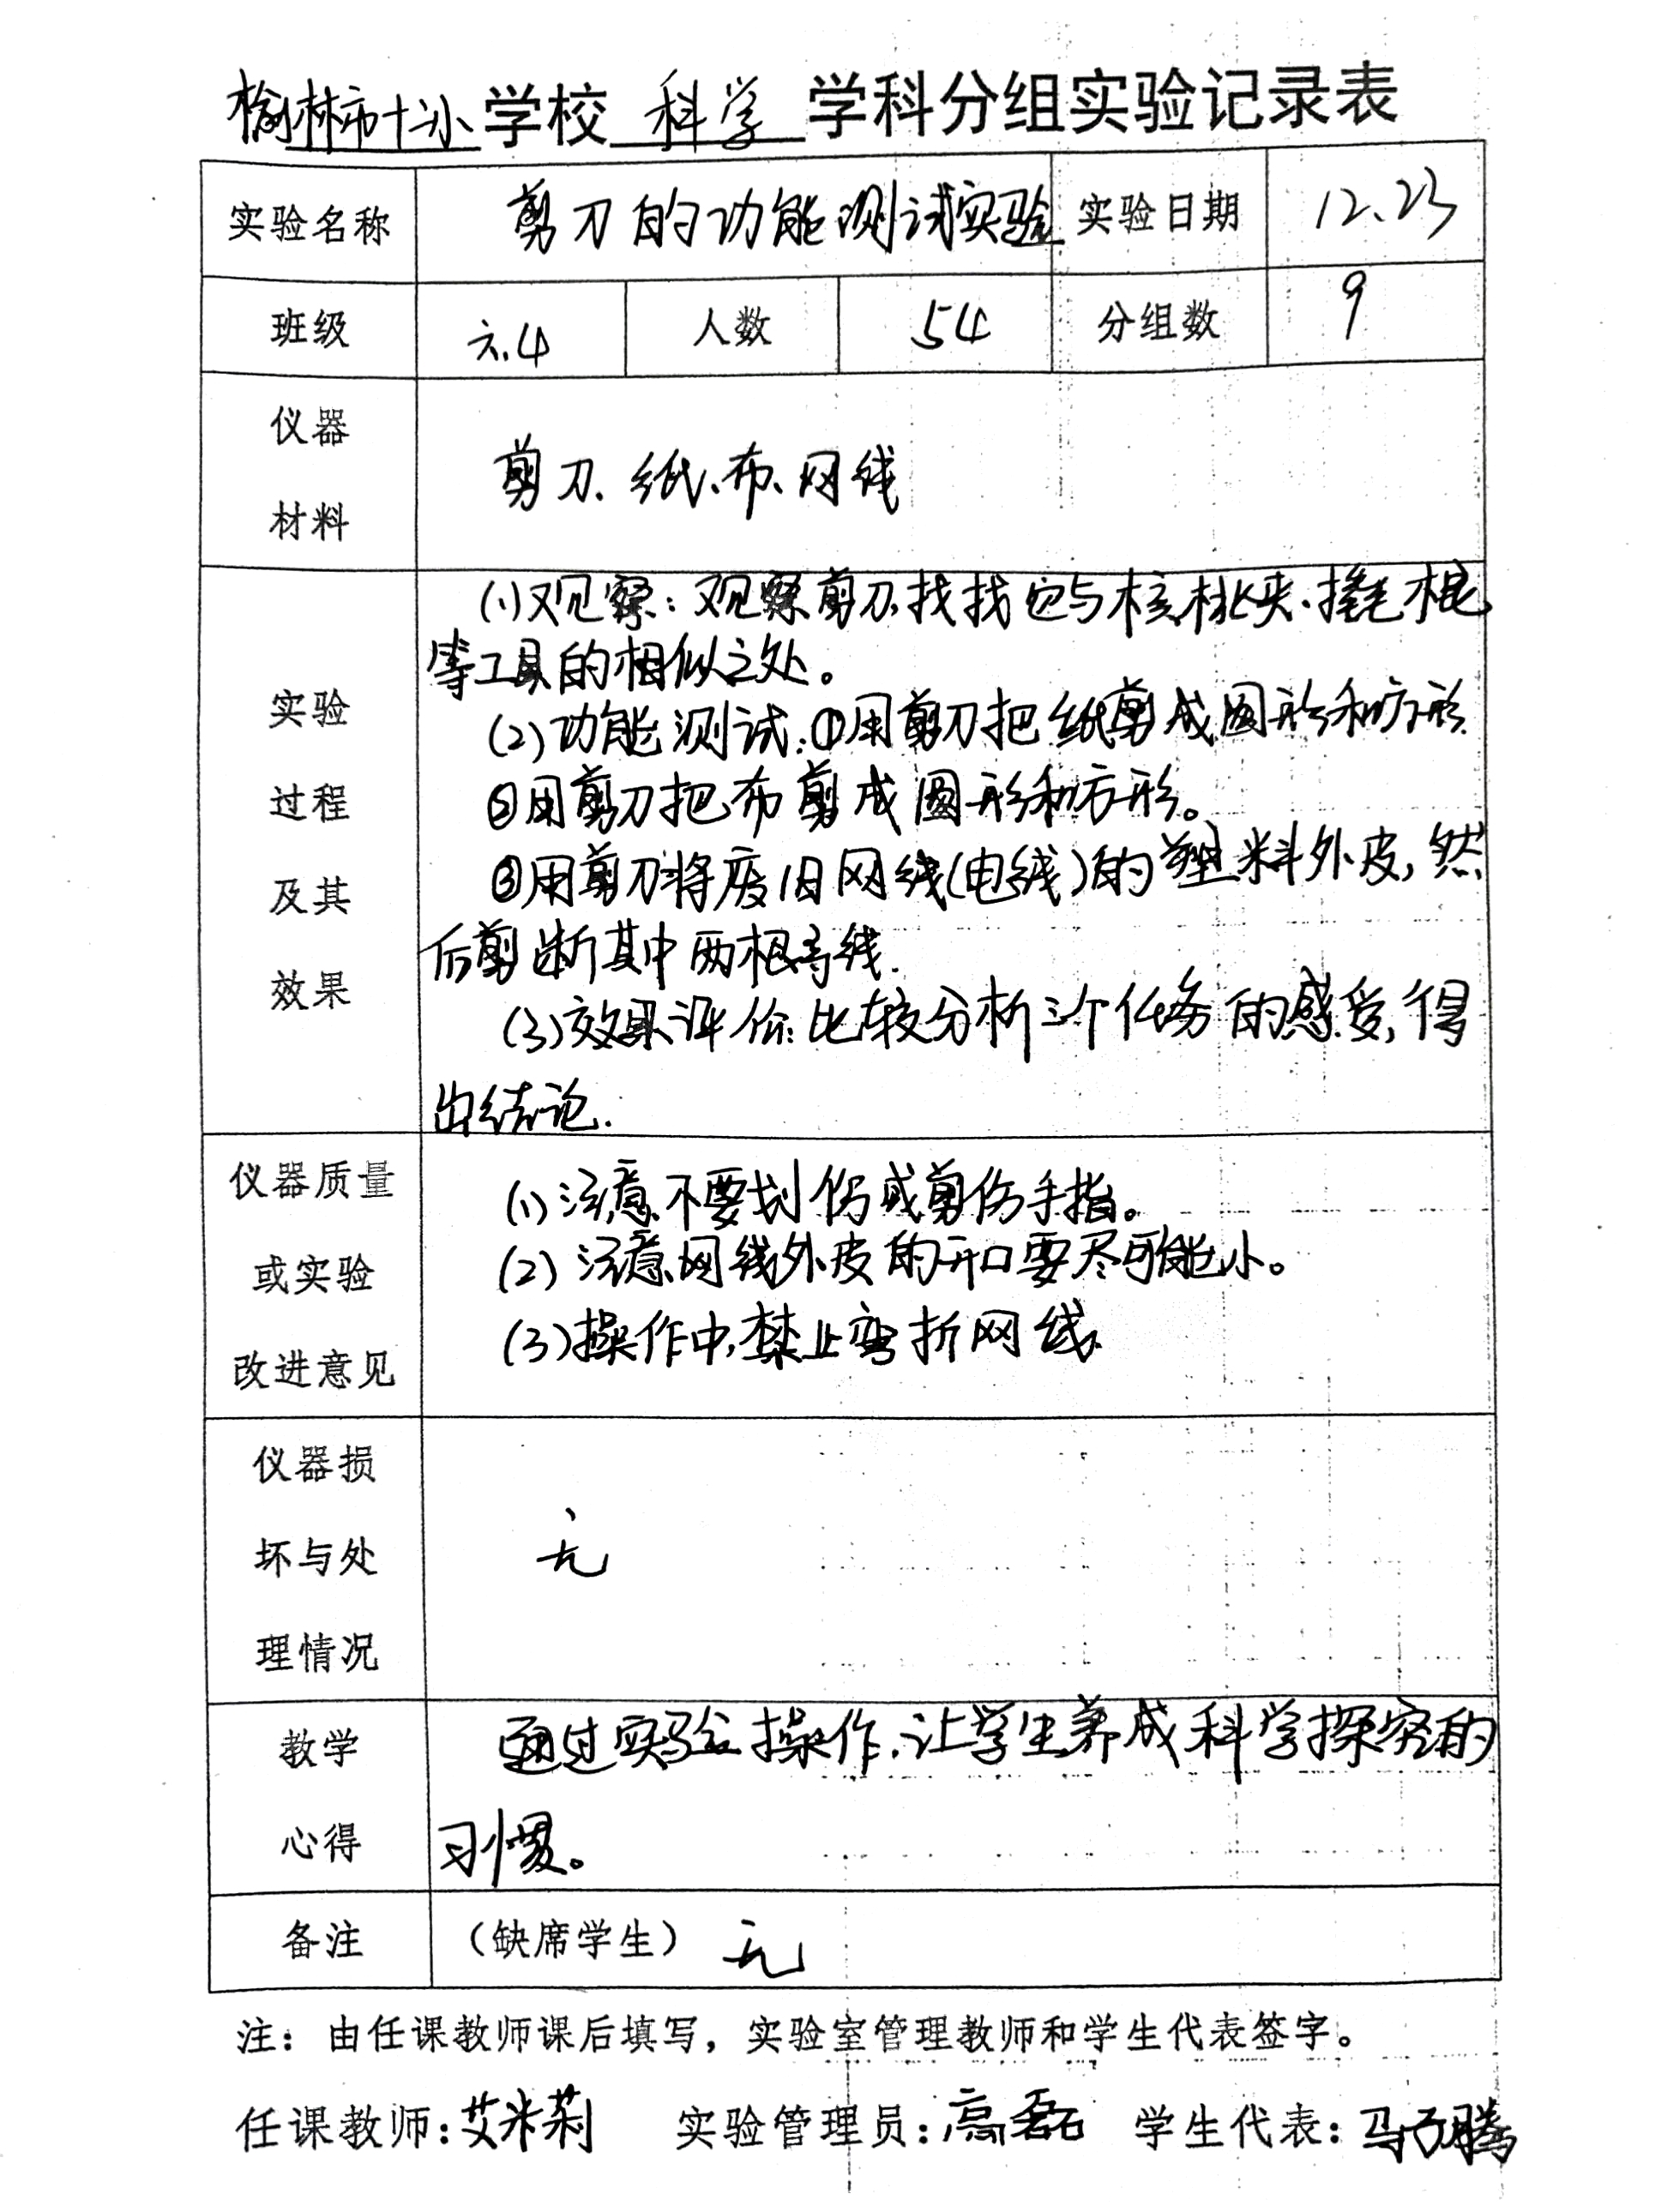 榆林市十二小学校 科学 学科分组实验记录表
实验名称 剪刀的功能测试实验 实验日期 12.23
班级 六.4 人数 54 分组数 9
仪器
材料
剪刀、纸、布、网线
实验
过程
及其
效果
(1)观察:观察剪刀,找找它与核桃夹、撬棍
等工具的相似之处。
(2)功能测试:①用剪刀把纸剪成圆形和方形
②用剪刀把布剪成圆形和方形。
③用剪刀将废旧网线(电线)的塑料外皮,然
后剪断其中两根导线.
(3)效果评价:比较分析三个任务的感受,得
出结论.
仪器质量
或实验
改进意见
(1)注意不要划伤或剪伤手指。
(2)注意网线外皮的开口要尽可能小。
(3)操作中,禁止弯折网线.
仪器损
坏与处
理情况
无
教学
心得
通过实验操作,让学生养成科学探究的
习惯。
备注 (缺席学生) 无
注:由任课教师课后填写,实验室管理教师和学生代表签字。
任课教师:艾米莉 实验管理员:高磊 学生代表:马子腾